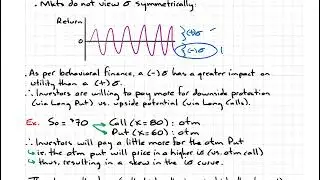 . Mkts do not view σ symmetrically:
Return
(+)σ
0
(-)σ !
. As per behavioral finance, a (-)σ has a greater impact on
utility than a (+)σ.
∴ Investors are willing to pay more for downside protection
(via Long Put) vs. upside potential (via Long Calls).
Ex. So = $70 Call (X = 80) : otm
Put (X = 60) : otm
∴ Investors will pay a little more for the otm Put
↳ i.e. the otm put will price in a higher σ (vs. otm call)
↳ thus, resulting in a skew in the iσ curve.